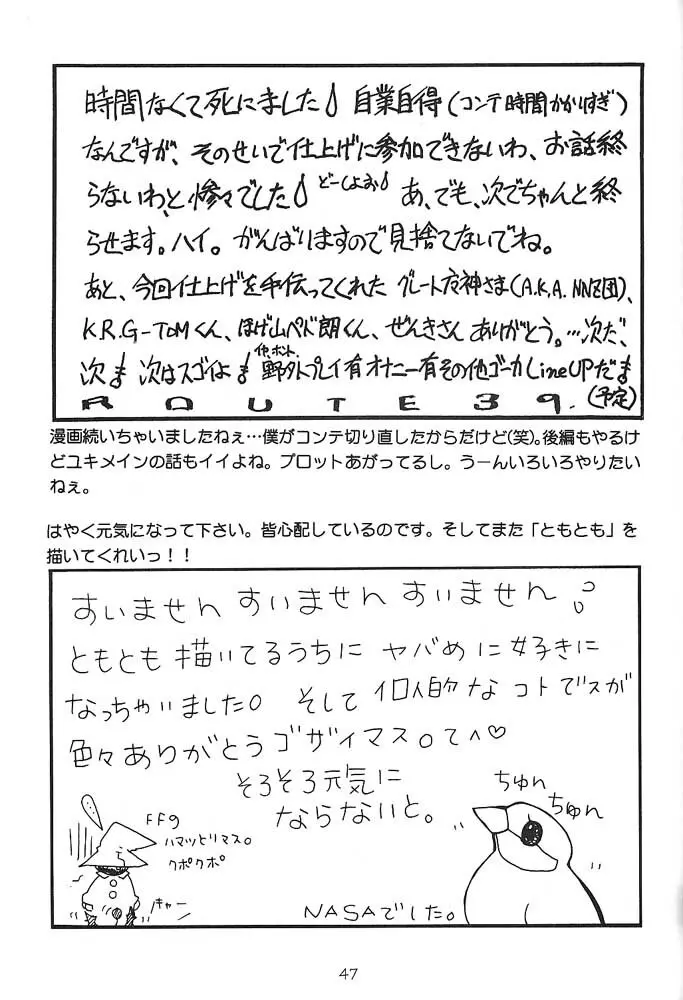 時間なくて死にました 自業自得(コンテ時間かかりすぎ)
なんですが、そのせいで仕上げに参加できないわ、お話終
らないわ、と惨々でした どーしよお あ、でも、次でちゃんと終
らせます。ハイ。がんばりますので見捨てないでね。
あと、今回仕上げを手伝ってくれた グレート 神さま(A.K.A. NNZ団)、
K.R.G-TOMくん、ほげ山ペド朗くん、ぜんきさん ありがとう。…次だ、
次 次はスゴイよ 野外プレイ有オナニー有その他ゴーカLineUPだ
(予定)
ROUTE39.
漫画続いちゃいましたねぇ…僕がコンテ切り直したからだけど(笑)。後編もやるけ
どユキメインの話もイイよね。プロットあがってるし。うーんいろいろやりたい
ねぇ。
はやく元気になって下さい。皆心配しているのです。そしてまた「ともとも」を
描いてくれいっ!!
すいません すいません すいません
ともとも描いてるうちに ヤバめに好きに
なっちゃいました。 そして 個人的な コトですが
色々ありがとうゴザイマス。て^♡
そろそろ元気に
ならないと。
FFの
ハマッとリマス。
クポクポ
キャー
ちゅん
ちゅん
NASAでした。
47